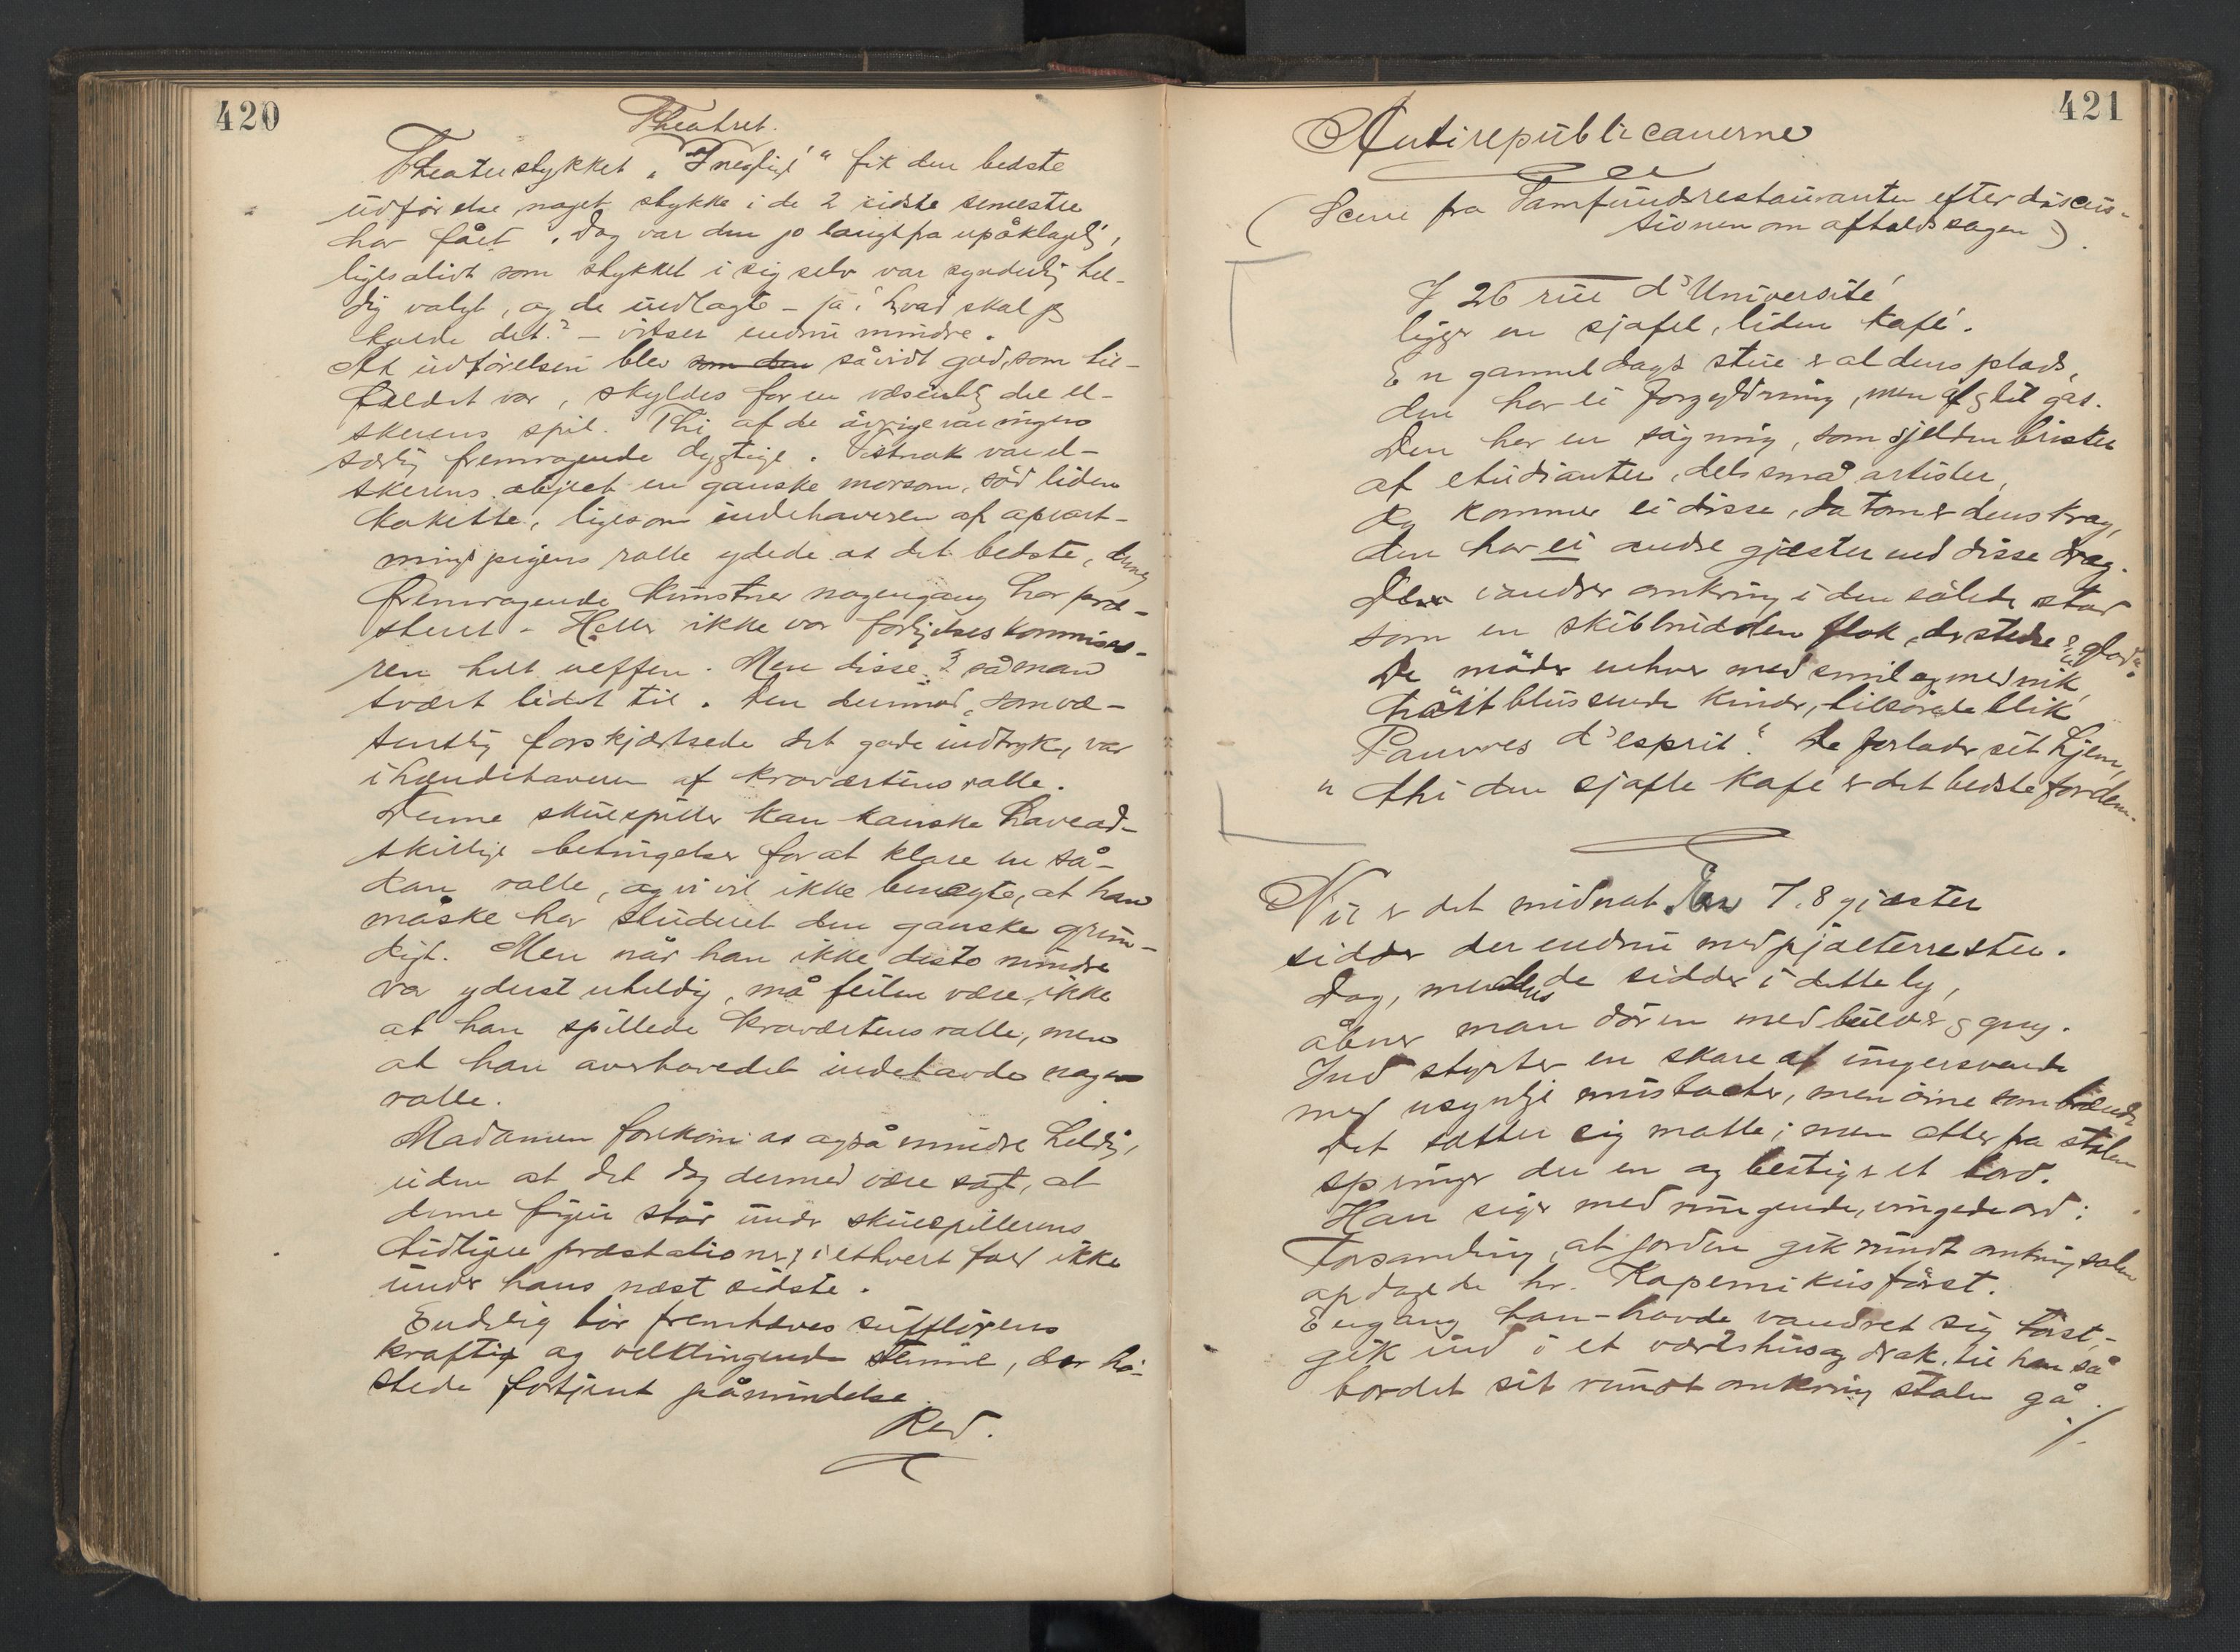 420
Theatret.
Theaterstykket „I negligé“ fik den bedste
udførelse, noget stykke i de 2 sidste semestre
har fået. Dog var den jo langt fra upåklagelig,
ligesålidt som stykket i sig selv var synderlig hel-
dig valgt, og de indlagte – ja! hvad skal jeg
kalde det? – vitser endnu mindre.
At udførelsen blev som den såvidt god, som til-
fældet var, skyldes for en væsentlig del el-
skerens spil. Thi af de øvrige var ingen
særlig fremragende dygtige. Vistnok var el-
skerens object en ganske morsom, sød liden
kokette, ligesom indehaveren af opvart-
ningspigens rolle ydede os det bedste, denne
fremragende kunstner nogengang har præ-
steret – Heller ikke var forligelseskommissæ-
ren helt ueffen. Men disse 3 så man
svært lidet til. Den derimod, som væ-
sentlig forskjertsede det gode indtryk, var
ihændehaveren af krovertens rolle.
Denne skuespiller kan kanske have ad-
skillige betingelser for at klare en så-
dan rolle, og vi vil ikke benegte, at han
måske har studeret den ganske grun-
digt. Men når han ikke desto mindre
var yderst uheldig, må feilen være, ikke
at han spillede krovertens rolle, men
at han overhovedet indehavde nogen
rolle.
Madamen forekom os også mindre heldig,
uden at det dog dermed være sagt, at
denne figur står under skuespillerens
tidligere præstationer, i ethvert fald ikke
under hans næst sidste.
Endelig bør fremhæves sufflørens
kraftige og velklingende stemme, der hø-
stede fortjent påmindelse.
Red.
421
Antirepublicanerne
(Scene fra Samfundsrestauranten efter discus-
sionen om afholdssagen).
I 26 rue d'Université
ligger en sjofel, liden kafé.
En gammeldags stue er al dens plads,
den har ei forgyldning, men afslidt gas.
Den har en søgning, som sjelden brister
af etudianter, dels små artister,
og kommer ei disse, da tom er dens krog,
den har ei andre gjæster end disse dog.
Der vandrer omkring i den således stad
som en skibbrudden flok, der stedse er glad.
De møder enhver med smil og med nik,
høit blussende kinder, tilslørede blik
Pauvres d'esprit! De forlader sit hjem,
thi den sjofle kafe er det bedste for dem.
Nu er det midnat. En 7, 8 gjæster
sidder der endnu med pjolterrester.
Dog, medens de sidder i dette ly,
åbner man døren med bulder og gny.
Ind styrter en skare af ungersvende
med usynlige mustacher, men øine som brænder
Det sætter sig matte; men atter fra stolen
springer der en og bestiger et bord.
Han siger med rungende, vingede ord:
Forsamling, at jorden gik rundt omkring solen
opdagede hr. Kopernikus først.
Engang han havde vandret sig tørst,
gik ind i et vertshus og drak, til han så
bordet sit rundt omkring stolen gå.
./.